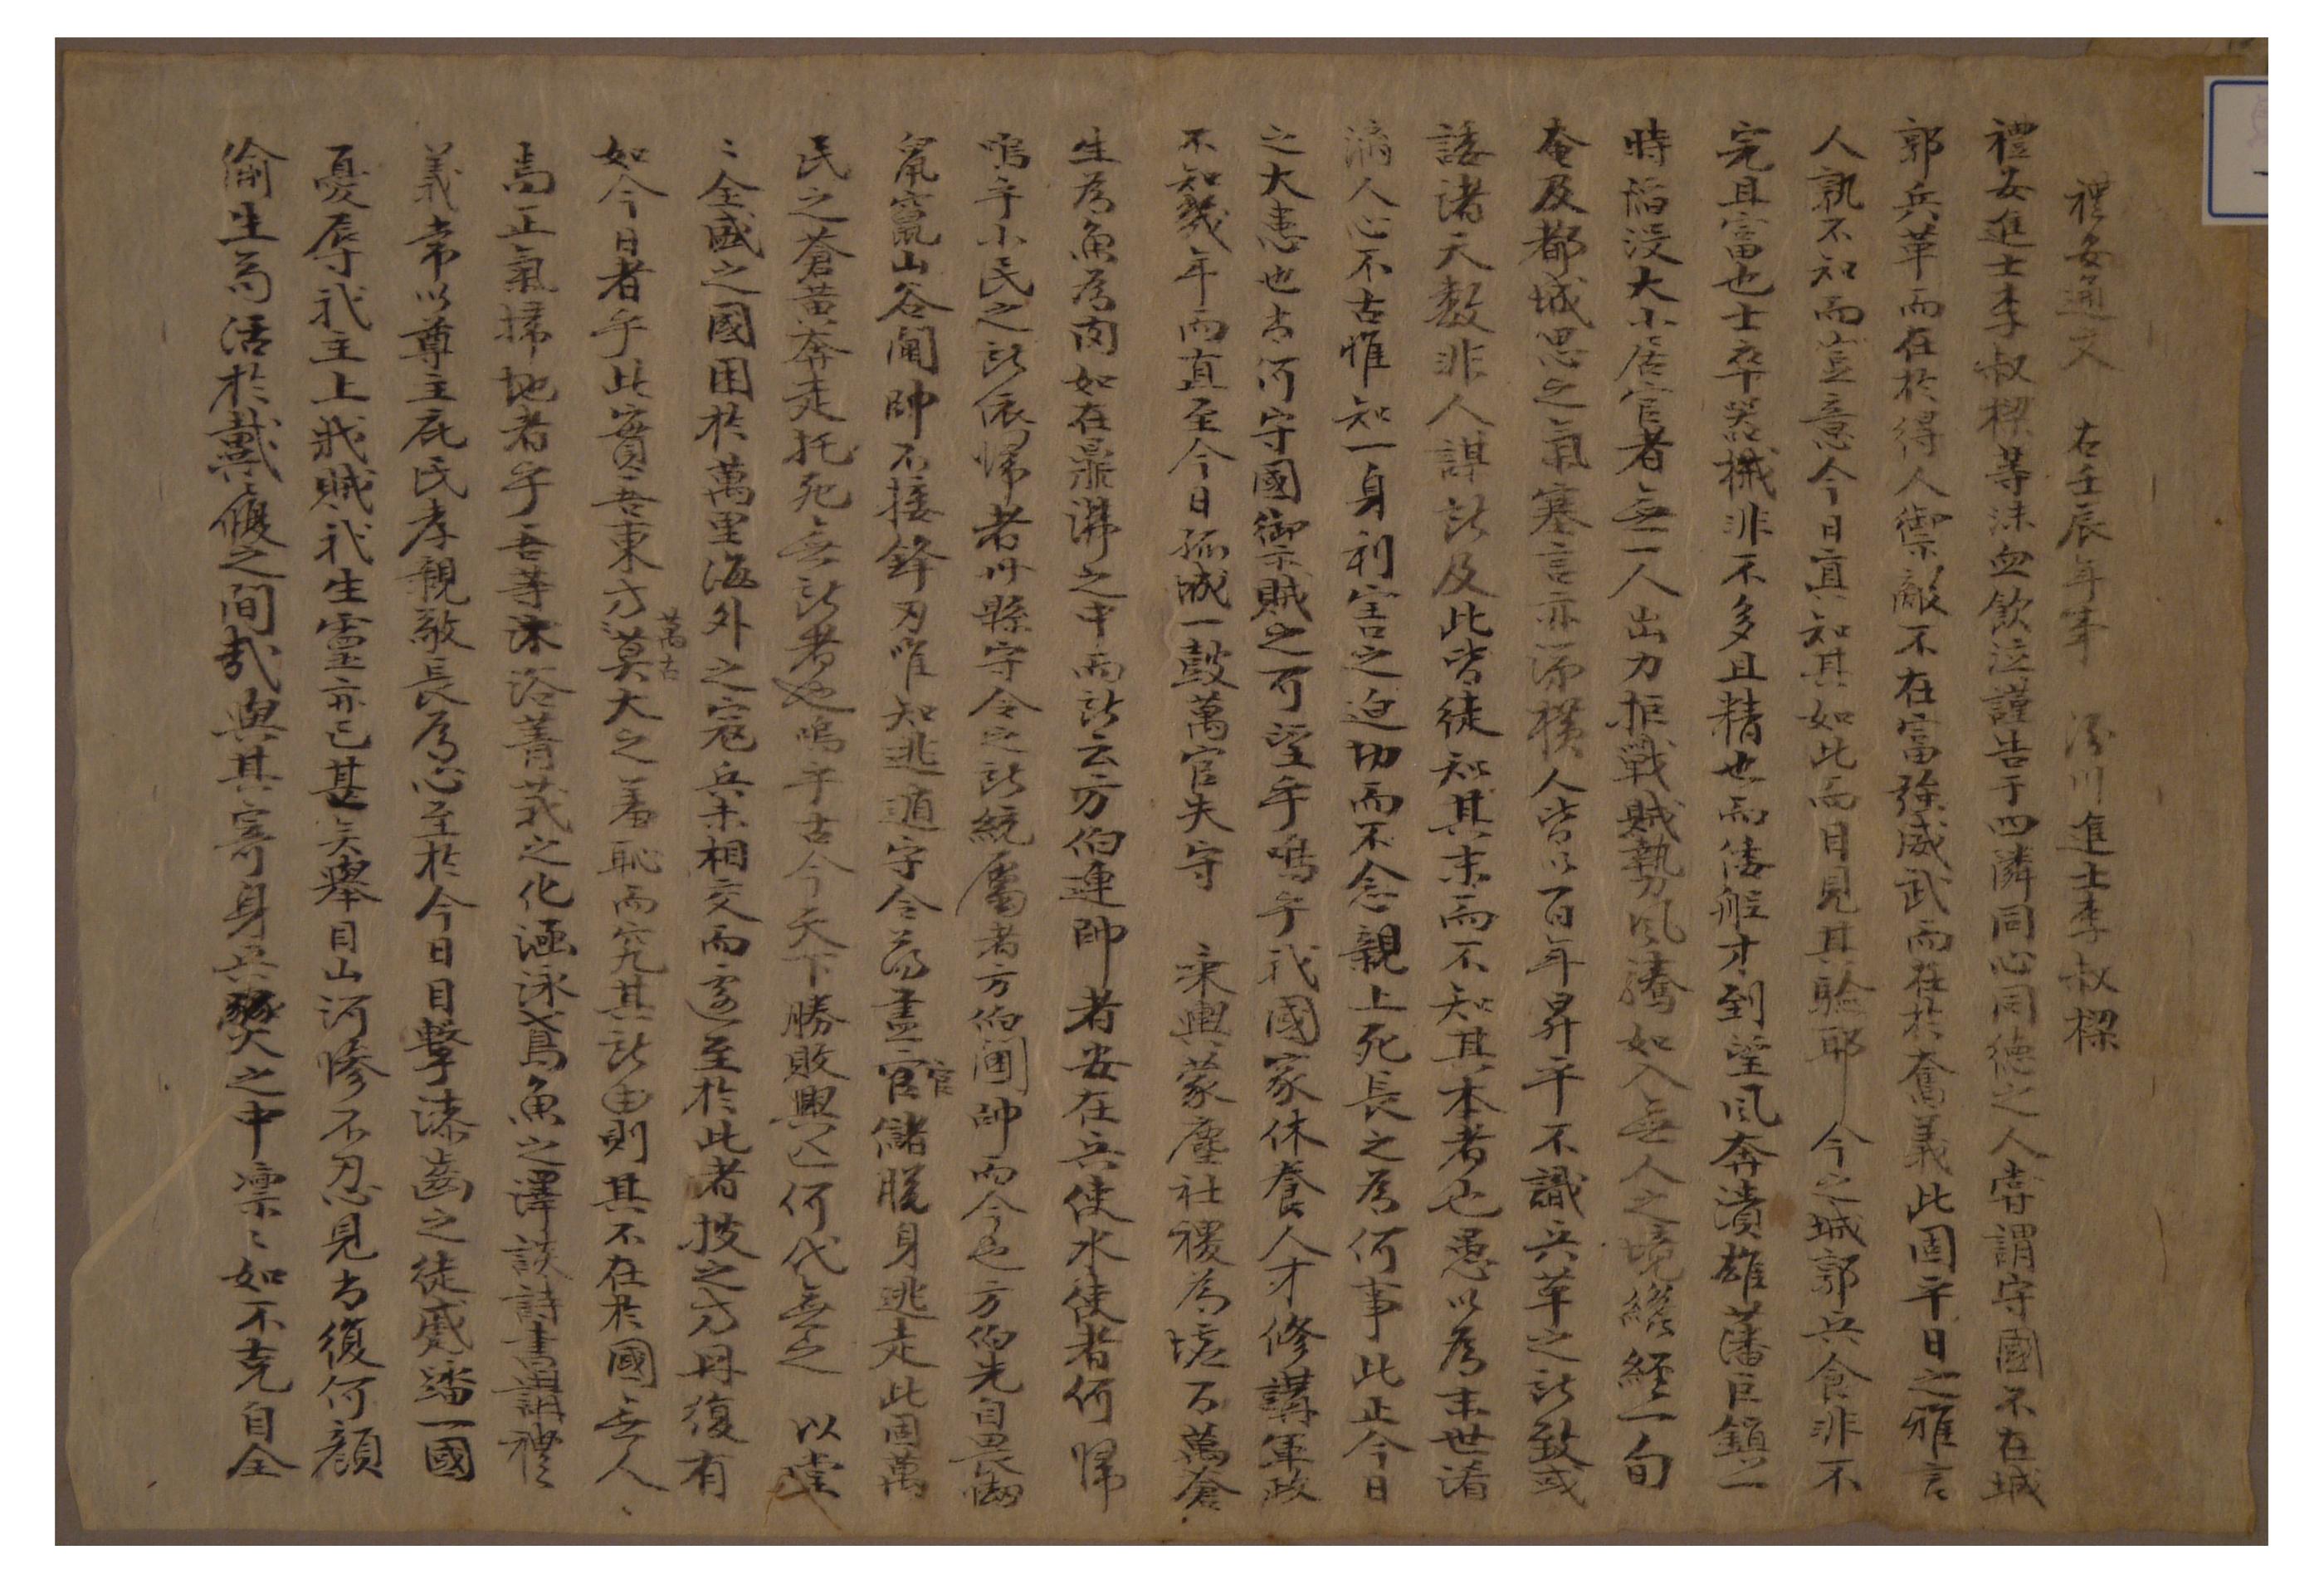 禮安通文 右壬辰年事 汾川進士李叔樑
禮安進士李叔樑等沫血飮泣謹告于四隣同心同德之人嘗謂守國不在城
郭兵革而在於得人禦敵不在富强威武而在於奮義此固平日之雅言
人孰不知而豈意今日眞知其如此而目見其驗耶 今之城郭兵食非不
完且富也士卒器械非不多且精也而倭船才到望風奔潰雄藩巨鎭一
時陷沒大小居官者無一人出力拒戰賊勢風騰如入無人之境纔經一旬
奄及都城思之氣塞言亦涕橫人皆以百年昇平不識兵革之所致或
諉諸天數非人謀所及此皆徒知其末而不知其本者也愚以爲末世淆
漓人心不古惟知一身利害之迫切而不念親上死長之爲何事此正今日
之大患也尙何守國禦賊之可望乎嗚乎我國家休養人才修講軍政
不知幾年而直至今日孤城一鼓萬官失守 乘輿蒙塵社稷爲墟百萬蒼
生爲魚爲肉如在鼎沸之中而所云方伯連帥者安在兵使水使者何歸
嗚乎小民之所依歸者州縣守令之所統屬者方伯閫帥而今也方伯先自畏㥘
鼠竄山谷閫帥不接鋒刃唯知逃遁守令蕩盡官官儲脫身逃走此固萬
民之蒼黃奔走托死無所者也嗚乎古今天下勝敗興亡何代無之 以堂
〻全盛之國困於萬里海外之寇兵未相交而遽至於此者披之方冊復有
如今日者乎此實吾東方萬古莫大之羞恥而究其所由則其不在於國無人
焉正氣掃地者乎吾等沐浴菁莪之化涵泳鳶魚之澤談詩書講禮
義常以尊主庇民孝親敬長爲心至於今日目擊漆齒之徒蹙踏一國
憂辱我主上戕賊我生靈亦已甚矣擧目山河慘不忍見尙復何顔
偷生苟活於戴履之間哉與其寄身兵燹之中凛〻如不克自全